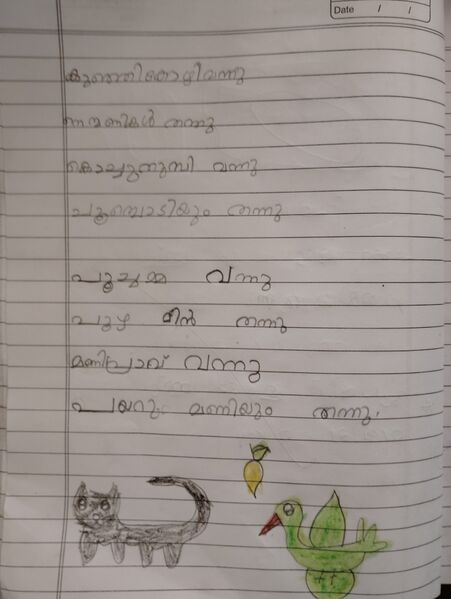 Date / /
കുഞ്ഞിക്കോഴി വന്നു
നന്മണികൾ തന്നു
കൊച്ചുതുമ്പി വന്നു
പൂമ്പൊടിയും തന്നു
പൂച്ചമ്മ വന്നു
പുഴ മീൻ തന്നു
മണിപ്രാവ് വന്നു
പയറു മണിയും തന്നു.